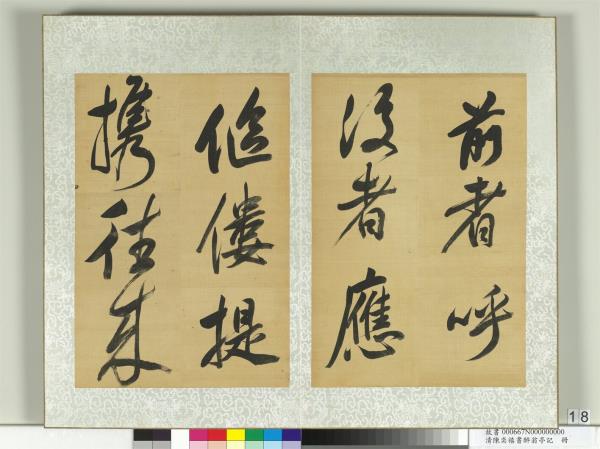 前者呼
後者應
傴僂提
携往来
18
故書 000667N000000000
清陳奕禧書醉翁亭記 冊